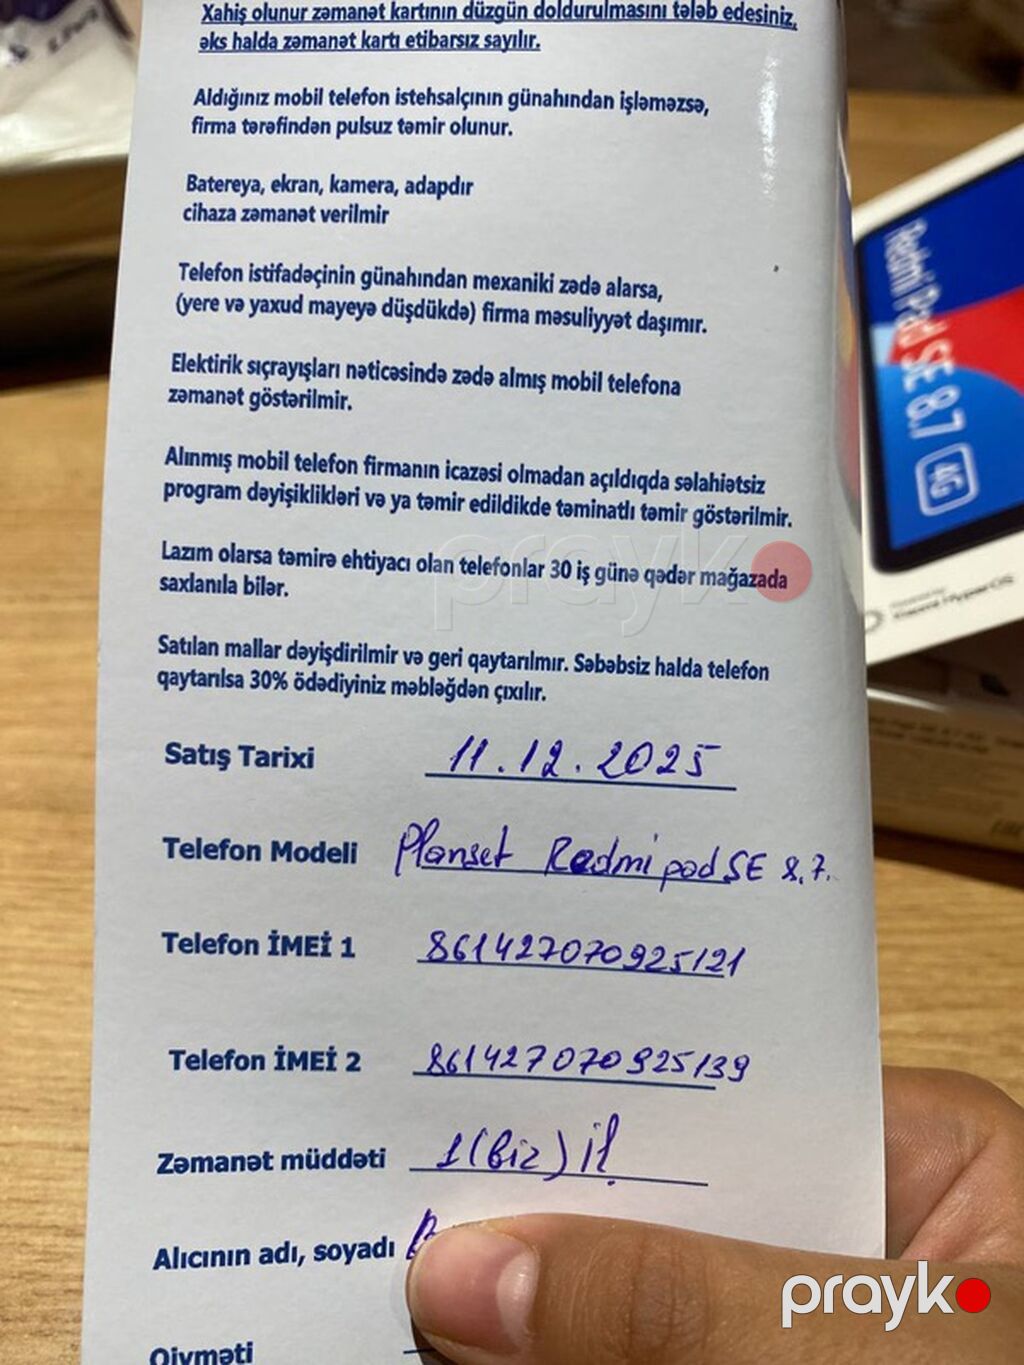 Xahiş olunur zəmanət kartının düzgün doldurulmasını tələb edəsiniz,
əks halda zəmanət kartı etibarsız sayılır.
Aldığınız mobil telefon istehsalçının günahından işləməzsə,
firma tərəfindən pulsuz təmir olunur.
Batereya, ekran, kamera, adapdır
cihaza zəmanət verilmir
Telefon istifadəçinin günahından mexaniki zədə alarsa,
(yere və yaxud mayeyə düşdükdə) firma məsuliyyət daşımır.
Elektirik sıçrayışları nəticəsində zədə almış mobil telefona
zəmanət göstərilmir.
Alınmış mobil telefon firmanın icazəsi olmadan açıldıqda səlahiətsiz
program dəyişiklikləri və ya təmir edildikde təminatlı təmir göstərilmir.
Lazım olarsa təmirə ehtiyacı olan telefonlar 30 iş günə qədər mağazada
saxlanıla bilər.
Satılan mallar dəyişdirilmir və geri qaytarılmır. Səbəbsiz halda telefon
qaytarılsa 30% ödədiyiniz məbləğdən çıxılır.
Satış Tarixi 11.12.2025
Telefon Modeli Planset Redmi pad SE 8.7.
Telefon İMEİ 1 861427070925121
Telefon İMEİ 2 861427070925139
Zəmanət müddəti 1 (biz) il
Alıcının adı, soyadı
Qiyməti
Redmi Pad SE 8.7
4G
Xiaomi HyperOS
prayko
prayko